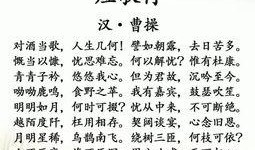 汉·曹操
对酒当歌，人生几何！譬如朝露，去日苦多。
慨当以慷，忧思难忘。何以解忧？惟有杜康。
青青子衿，悠悠我心。但为君故，沉吟至今。
呦呦鹿鸣，食野之苹。我有嘉宾，鼓瑟吹笙。
明明如月，何时可掇？忧从中来，不可断绝。
越陌度阡，枉用相存。契阔谈宴，心念旧恩。
月明星稀，乌鹊南飞。绕树三匝，何枝可依？